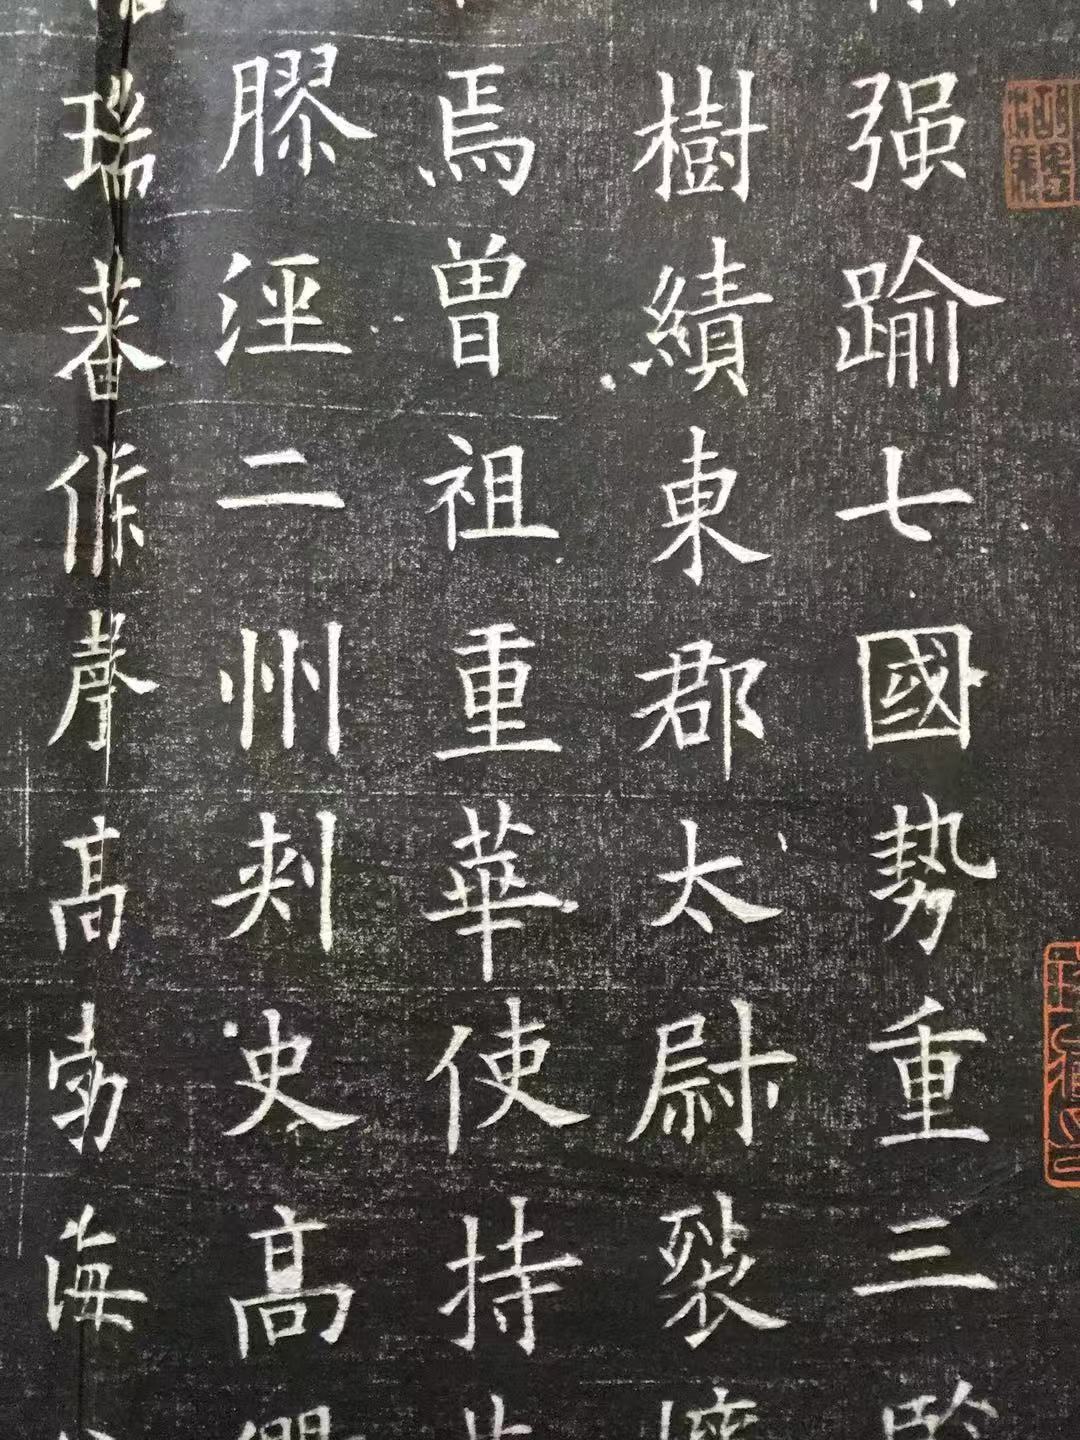 强踰七國勢重三
樹績東郡太尉裂
焉曾祖重華使持
膠湮二州刺史高
瑞蕃條聲高勃海